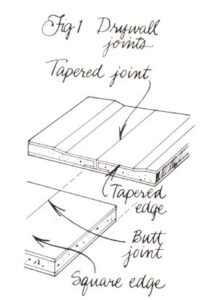 Fig 1 Drywall
joints
Tapered joint
Tapered
edge
Butt
joint
Square edge